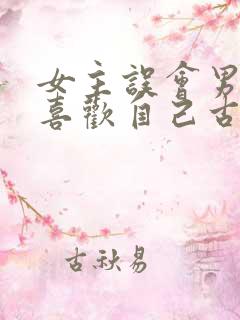 女主誤會男
喜歡自己古
古秋易